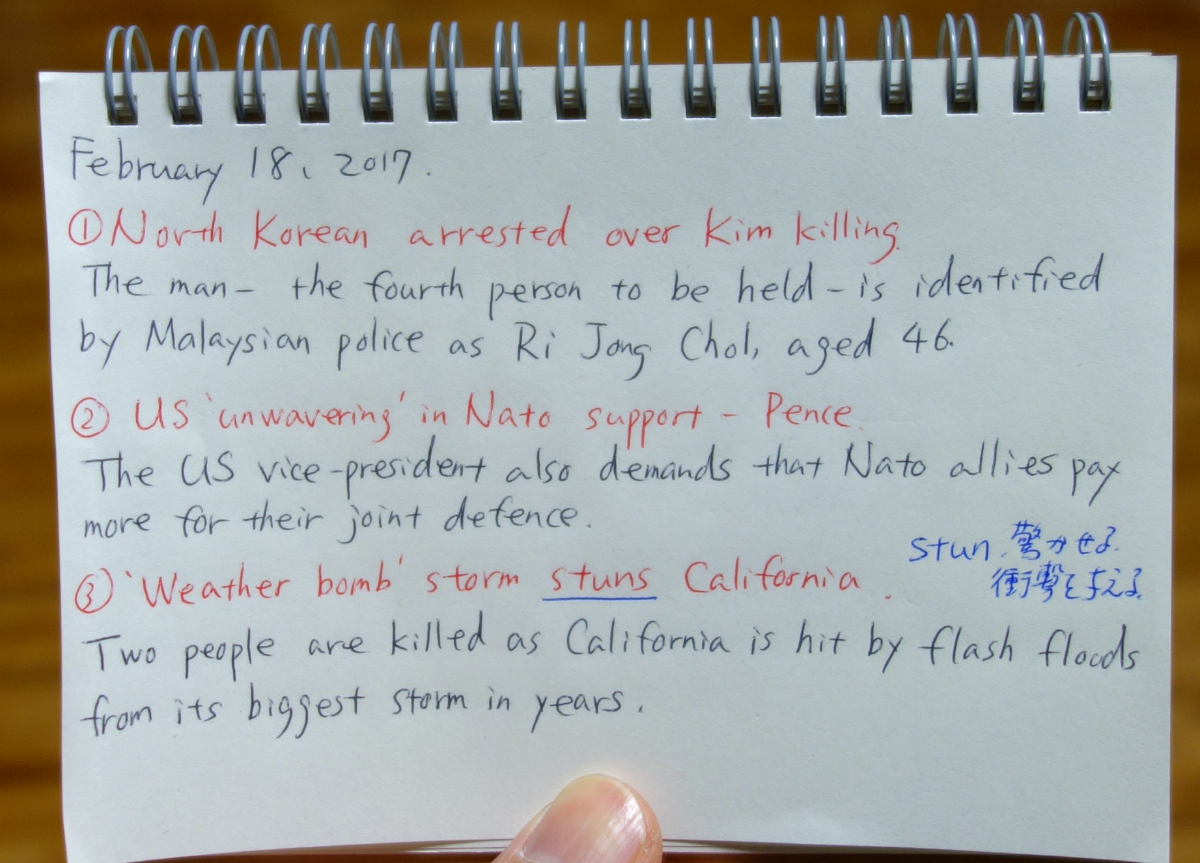 February 18, 2017.
①North Korean arrested over Kim killing.
The man – the fourth person to be held – is identified
by Malaysian police as Ri Jong Chol, aged 46.
② US 'unwavering' in Nato support – Pence.
The US vice-president also demands that Nato allies pay
more for their joint defence.
stun. 驚かせる.
衝撃を与える.
③ 'Weather bomb' storm stuns California.
Two people are killed as California is hit by flash floods
from its biggest storm in years.